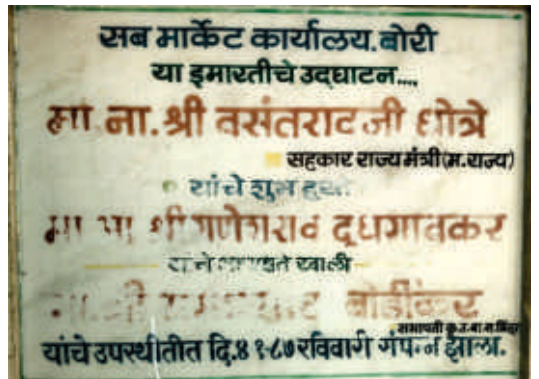 सब मार्केट कार्यालय.बोरी
या इमारतीचे उद्घाटन....
मा. ना. श्री वसंतराव जी धोत्रे
सहकार राज्य मंत्री (म.राज्य)
यांचे शुभ हस्ते
मा श्री गणेशराव दुधगावकर
यांचे खाली
मा.श्री बोर्डीकर
सभापती कृ.उ.बा.स.
यांचे उपस्थीतीत दि.४ १-८७ रविवारी संपन्न झाला.